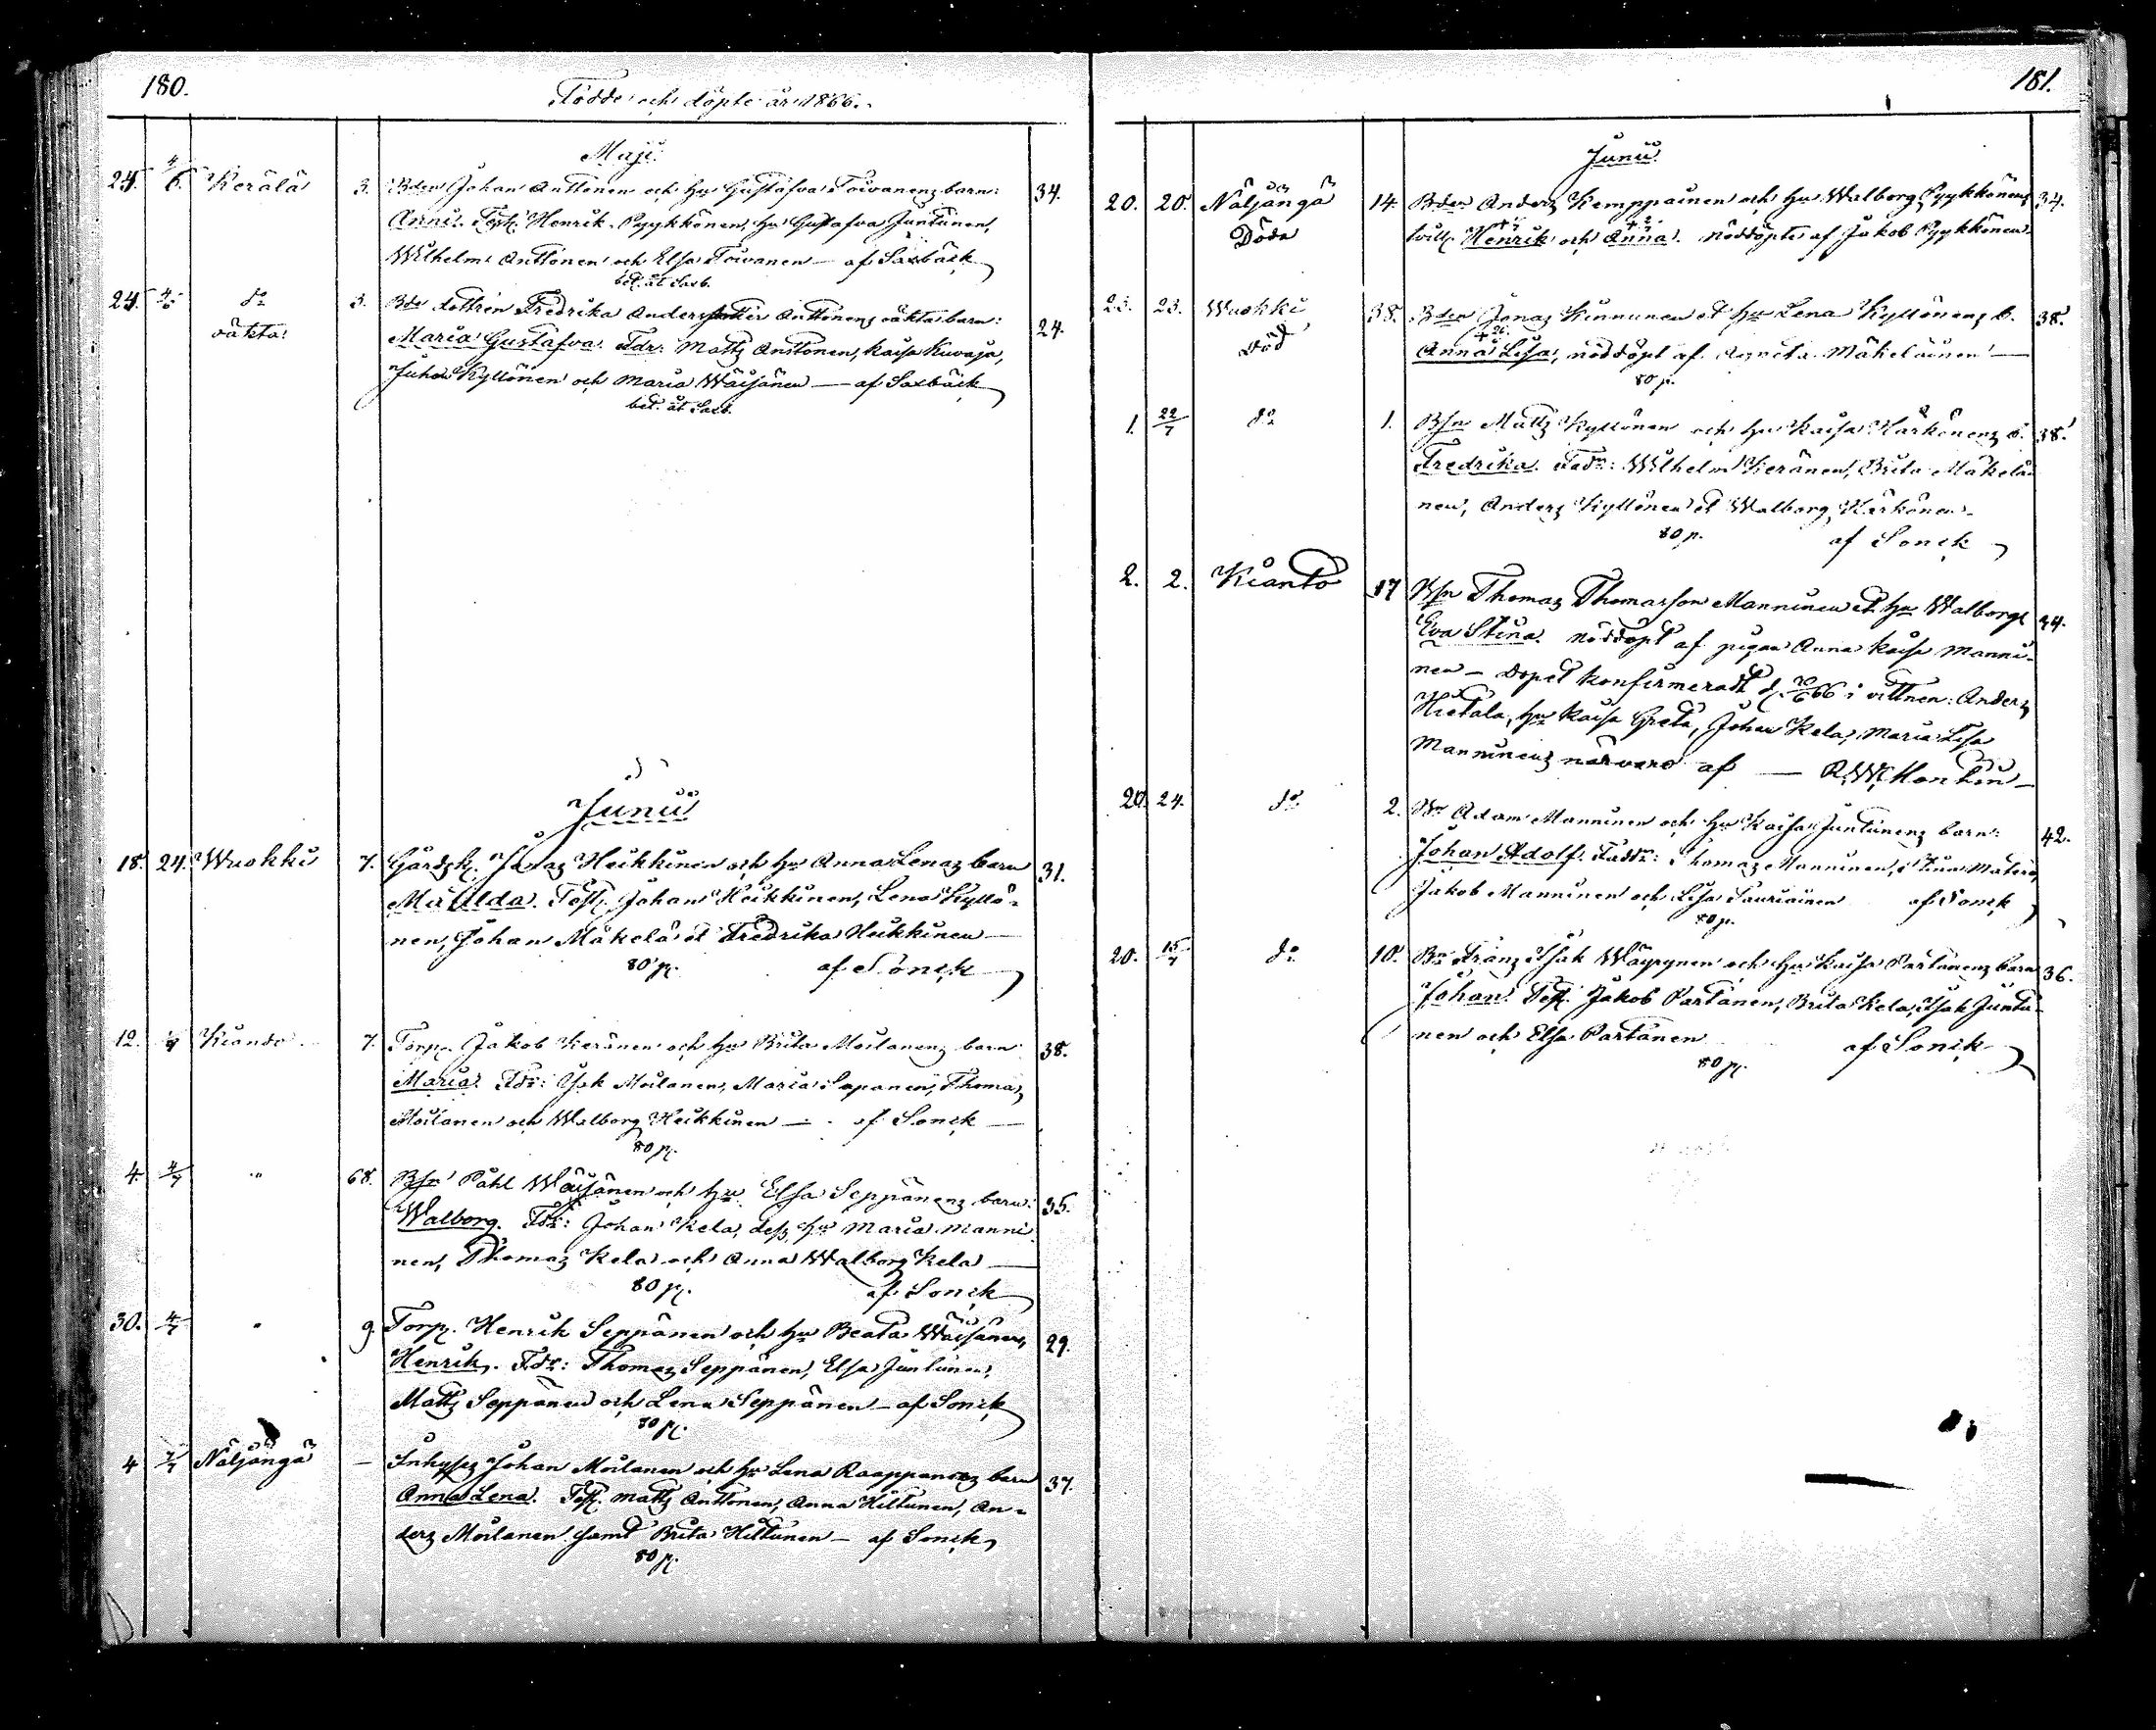 180.
Födde och döpte år 1866.
Maji
24. 4/6. Kerälä 3. Bden Johan Anttonen och hu Gustafva Toivanens barn: 34.
Anni. Test. Henrik Pyykkönen, hu Gustafva Juntunen,
Wilhelm Anttonen och Elsa Toivanen — af Saxbäck
bet. åt Saxb.
24. 4/6 do 3. Bde dottren Fredrika Andersdotter Anttonens oäkta barn: 24.
oäkta
Maria Gustafva. Fdr: Matts Anttonen, Kaisa Kuvaja,
Juhan Kyllönen och Maria Wäisänen — af Saxbäck
bet. åt Saxb.
Junii
18. 24. Wuokki 7. Gårdsk. Jonas Heikkinen och hu Anna Lenas barn 31.
Matilda. Test. Johan Heikkinen, Lena Kyllö-
nen, Johan Mäkelä et Fredrika Heikkinen —
80 p. af Sonck
12. Kiando 7. Torp. Jakob Keränen och hu Brita Moilanens barn 38.
Maria. Fdr: Isak Moilanen, Maria Sapanen, Thomas
Moilanen och Walborg Heikkinen — af Sonck —
80 p.
4. 4/7 " 68. Bsn Påhl Wäisänen och hu Elsa Seppänens barn: 35.
Walborg. Fdr: Johan Kela, dess hu Maria Manni-
nen, Thomas Kela och Anna Walborg Kela —
80 p. af Sonck
30. 4/7 " 9. Torp. Henrik Seppänen och hu Beata Wäisänen, 29.
Henrik. Fdr: Thomas Seppänen, Elsa Juntunen,
Matts Seppänen och Lena Seppänen — af Sonck
80 p.
4 7/7 Näljängä — Inhyses Johan Moilanen och hu Lena Raappanas barn 37.
Anna Lena. Test. Matts Anttonen, Anna Hiltunen, An-
ders Moilanen samt Brita Hiltunen — af Sonck
80 p.
181.
Junii
20. 20. Näljängä 14. Bden Anders Kemppainen och hu Walborg Pyykkönens 34.
Döda
tvill. Henrik och Anna. nöddöpte af Jakob Pyykkönen.
23. 23. Wuokki 38. Bden Jonas Kinnunen et hu Lena Kyllönens b. 38.
Död
Anna Lisa, nöddöpt af Agneta Mäkeläinen —
80 p.
1. 22/7 do 1. Bsn Matts Kyllönen och hu Kaisa Härkönens b. 38.
Fredrika. Faddr: Wilhelm Keränen, Brita Mäkeläi-
nen, Anders Kyllönen et Walborg Härkönen.
80 p. af Sonck
2. 2. Kianto 17 Bsn Thomas Thomasson Manninen et hu Walborgs 34.
Eva Stina. nöddöpt af pigan Anna Kaisa Manni-
nen — dopet konfirmeradt d. 66 i vittnen: Anders
Hietala, hu Kaisa Greta, Johan Kela, Maria Lisa
Manninens närvaro af — R. W. Montin —
20. 24. do 2. Bn Adam Manninen och hu Kaisa Juntunens barn: 42.
Johan Adolf. Faddr: Thomas Manninen, Stina Matero,
Jakob Manninen och Lisa Tauriainen af Sonck
80 p.
20. 15/7 do 10. Bn Frans Isak Wäyrynen och hu Kaisa Partanens barn 36.
Johan. Test. Jakob Partanen, Brita Kela, Isak Juntu-
nen och Elsa Partanen af Sonck
80 p.